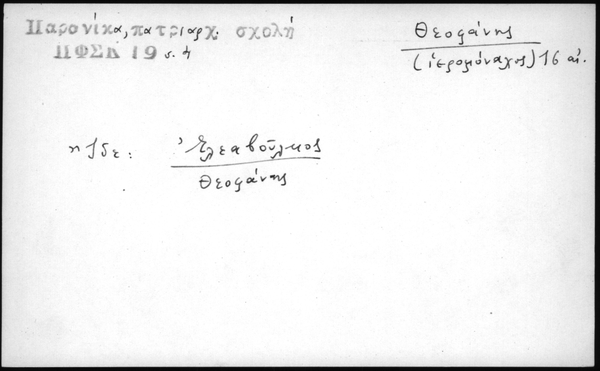 Παρονίκα, πατριαρχ. σχολή
ΠΦΣΚ 19 s. 4
Θεοφάνης
(ἱερομόναχος) 16 αἰ.
Ἐλεαβοῦλκος
Θεοφάνης